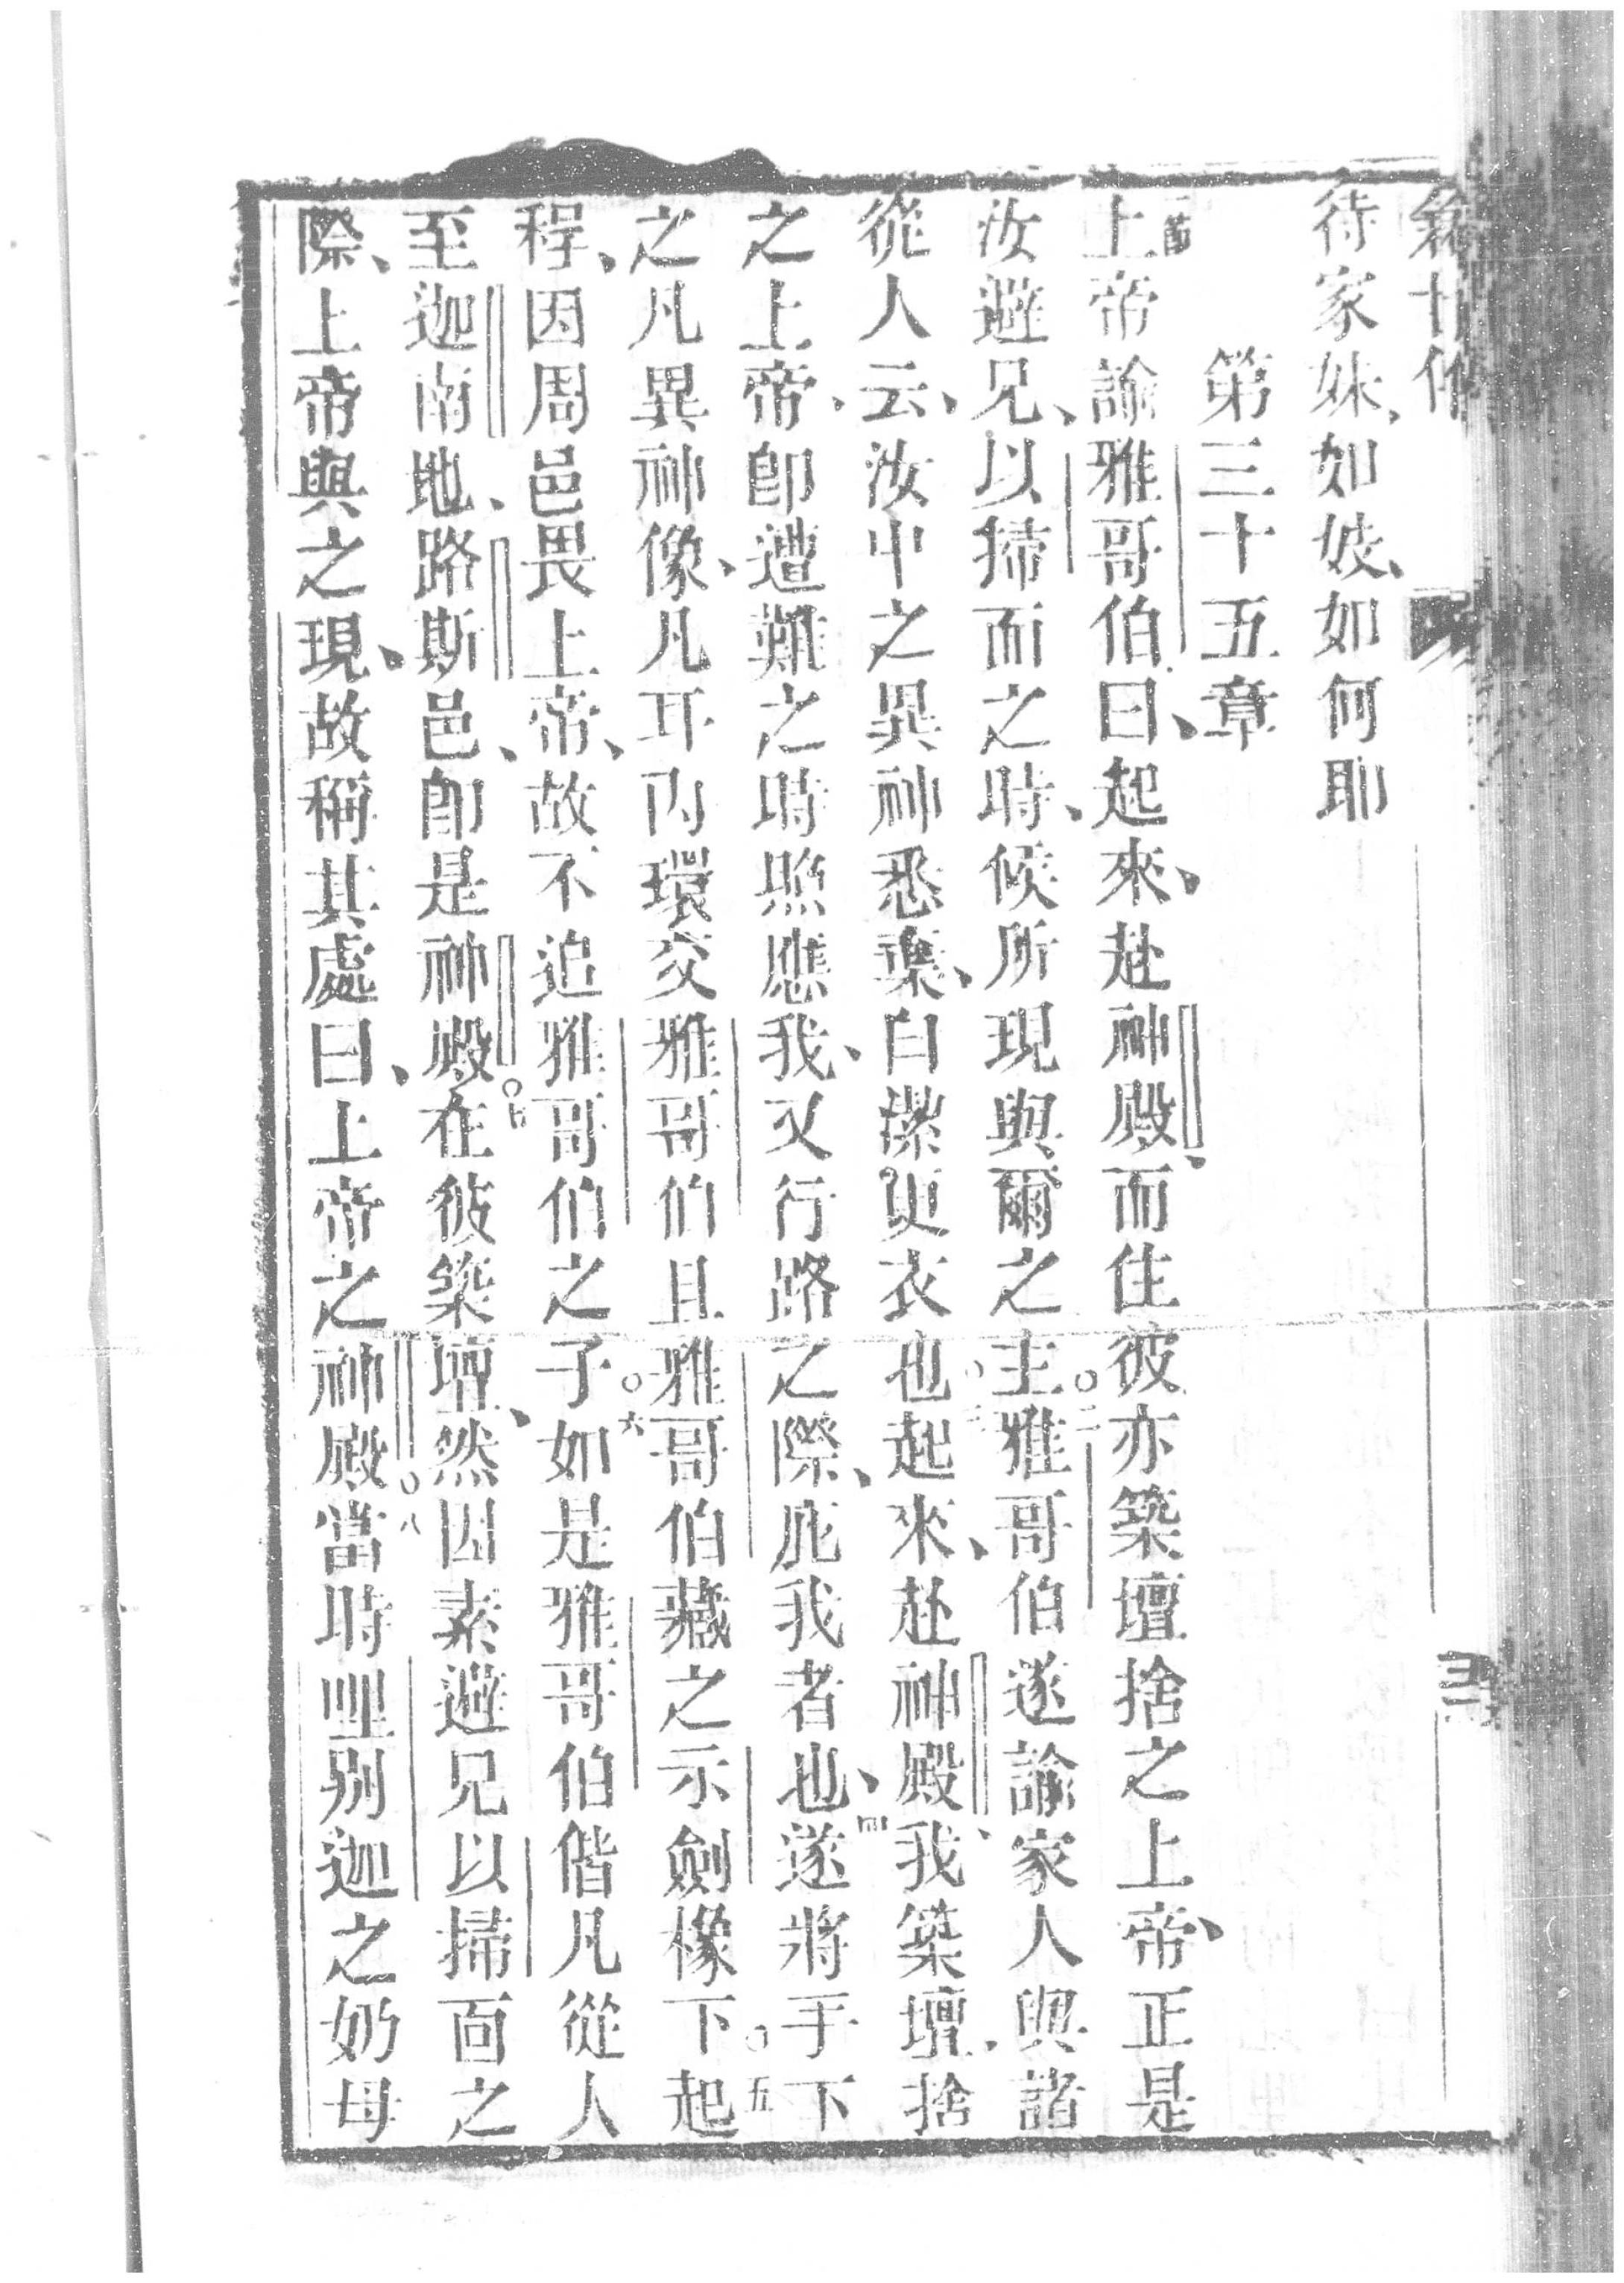 待家妹、如妓、如何耶
第三十五章
上帝諭雅哥伯曰、起來、赴神殿、而住彼亦築壇捨之上帝、正是
汝避兄、以掃而之時、候所現與爾之主○二雅哥伯遂諭家人與諸
從人云、汝中之異神悉棄、自潔更衣也○三起來、赴神殿、我築壇、捨
之上帝、卽遭難之時照應我、又行路之際、庇我者也、四遂將手下
之凡異神像、凡耳內環交雅哥伯且雅哥伯藏之示劍橡下○五起
程、因周邑畏上帝、故不追雅哥伯之子○六如是雅哥伯偕凡從人
至迦南地、路斯邑、卽是神殿○七在彼築壇、然因素避兄以掃面之
際、上帝與之現、故稱其處曰、上帝之神殿○八當時哩别迦之奶母